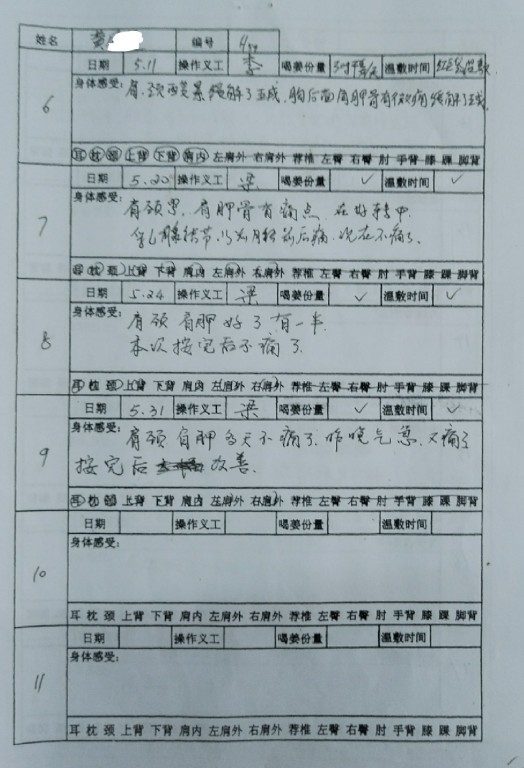 姓名 黄 编号
日期 5.11 操作义工 李 喝姜份量 温敷时间
6
身体感受:
肩、颈 缓解了五成,胸后面肩胛骨 痛缓解了五成
耳 枕 颈 上背 下背 肩内 左肩外 右肩外 荐椎 左臀 右臀 肘 手背 膝 踝 脚背
日期 5.20 操作义工 梁 喝姜份量 ✓ 温敷时间 ✓
7
身体感受:
肩颈累,肩胛骨有痛点 在好转中
腺结节, 前后痛,现在不痛了.
耳 枕 颈 上背 下背 肩内 左肩外 右肩外 荐椎 左臀 右臀 肘 手背 膝 踝 脚背
日期 5.24 操作义工 梁 喝姜份量 ✓ 温敷时间 ✓
8
身体感受:
肩颈 肩胛 好了有一半.
本次按完后不痛了.
耳 枕 颈 上背 下背 肩内 左肩外 右肩外 荐椎 左臀 右臀 肘 手背 膝 踝 脚背
日期 5.31 操作义工 梁 喝姜份量 ✓ 温敷时间 ✓
9
身体感受:
肩颈 肩胛 天不痛了.昨晚 又痛了
按完后 改善.
耳 枕 颈 上背 下背 肩内 左肩外 右肩外 荐椎 左臀 右臀 肘 手背 膝 踝 脚背
日期 操作义工 喝姜份量 温敷时间
10
身体感受:
耳 枕 颈 上背 下背 肩内 左肩外 右肩外 荐椎 左臀 右臀 肘 手背 膝 踝 脚背
日期 操作义工 喝姜份量 温敷时间
11
身体感受:
耳 枕 颈 上背 下背 肩内 左肩外 右肩外 荐椎 左臀 右臀 肘 手背 膝 踝 脚背